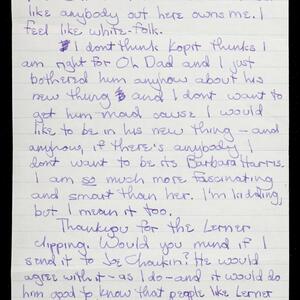 like anybody out here owns me. I
feel like white-folk.
I dont think Kopit thinks I
am right for Oh Dad and I just
bothered him anyhow about his
new thing and I dont want to
get him mad cause I would
like to be in his new thing - and
anyhow, if there's anybody I
dont want to be its Barbara Harris.
I am so much more fascinating
and smart than her. I'm kidding,
but I mean it too.
Thankyou for the Lerner
clipping. Would you mind if I
send it to Joe Chaikin? He would
agree with it - as I do - and it would do
him good to know that people like Lerner